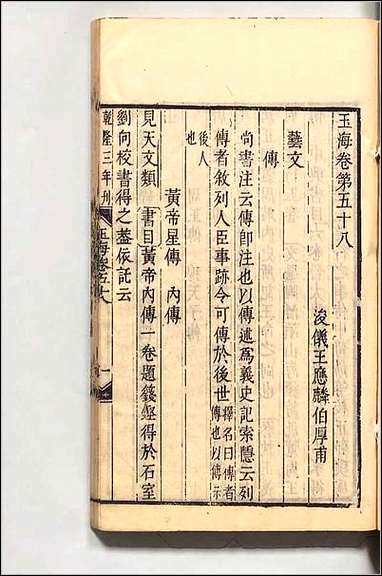 玉海卷第五十八
浚儀王應麟伯厚甫
藝文
傳
尚書注云傳卽注也以傳述爲義史記索隱云列
傳者敘列人臣事跡令可傳於後世釋名曰傳者
傳也以傳示
後人
也
黃帝星傳 內傳
見天文類 書目黃帝內傳一卷題籛鏗得於石室
劉向校書得之蓋依託云
乾隆三年刊 玉海卷五十八 一